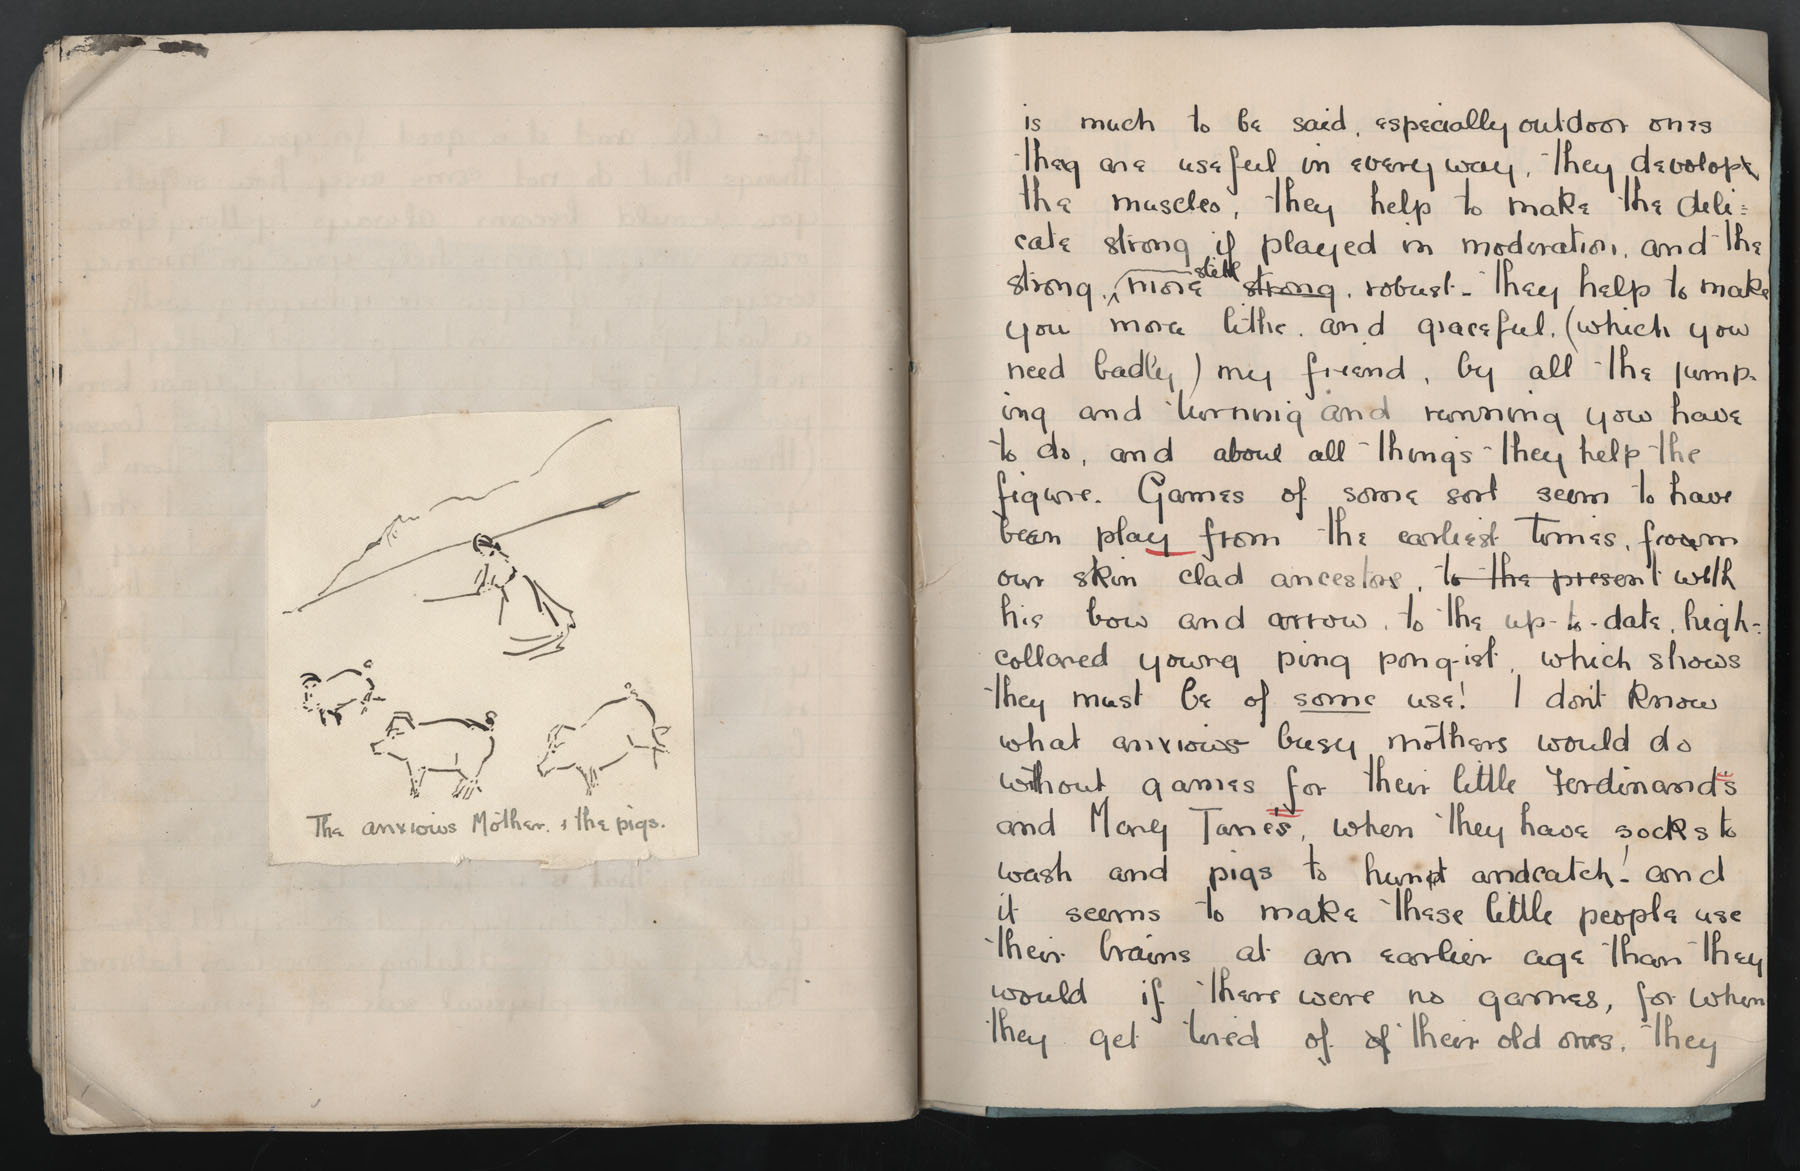 The anxious Mother. & the pigs.
is much to be said, especially outdoor ones
they are useful in every way, they develope
the muscles, they help to make the deli=
cate strong if played in moderation, and the
strong, more still strong. robust - they help to make
you more lithe. and graceful. (which you
need badly) my friend, by all the jump-
ing and turning and running you have
to do, and above all things they help the
figure. Games of some sort seem to have
been play from the earliest Times, from
our skin clad ancestors, to the present with
his bow and arrow, to the up-to-date, high-
collared young ping pong-ist, which shows
they must be of some use! I don't know
what anxious busy mothers would do
without games for their little Ferdinand's
and Mary Janes, when they have socks to
wash and pigs to hunt and catch! and
it seems to make these little people use
their brains at an earlier age than they
would if there were no games, for when
they get tired of of their old ones, they